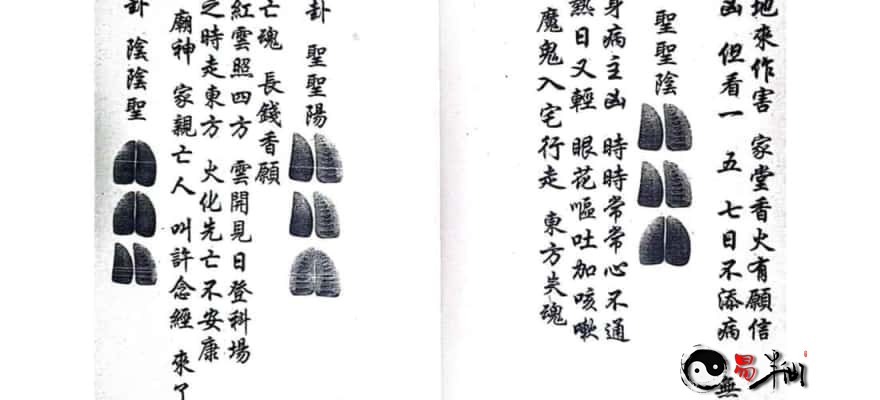 地來作害 家堂香火有願信
凶 但看一 五 七日不添病 無
聖聖陰
身病主凶 時時常常心不通
熱日又輕 眼花嘔吐加咳嗽
魔鬼入宅行走 東方失魂
卦 聖聖陽
亡魂 長錢香願
紅雲照四方 雲開見日登科場
之時走東方 火化先亡不安康
廟神 家親亡人 叫許念經 來了
卦 陰陰聖
易半仙